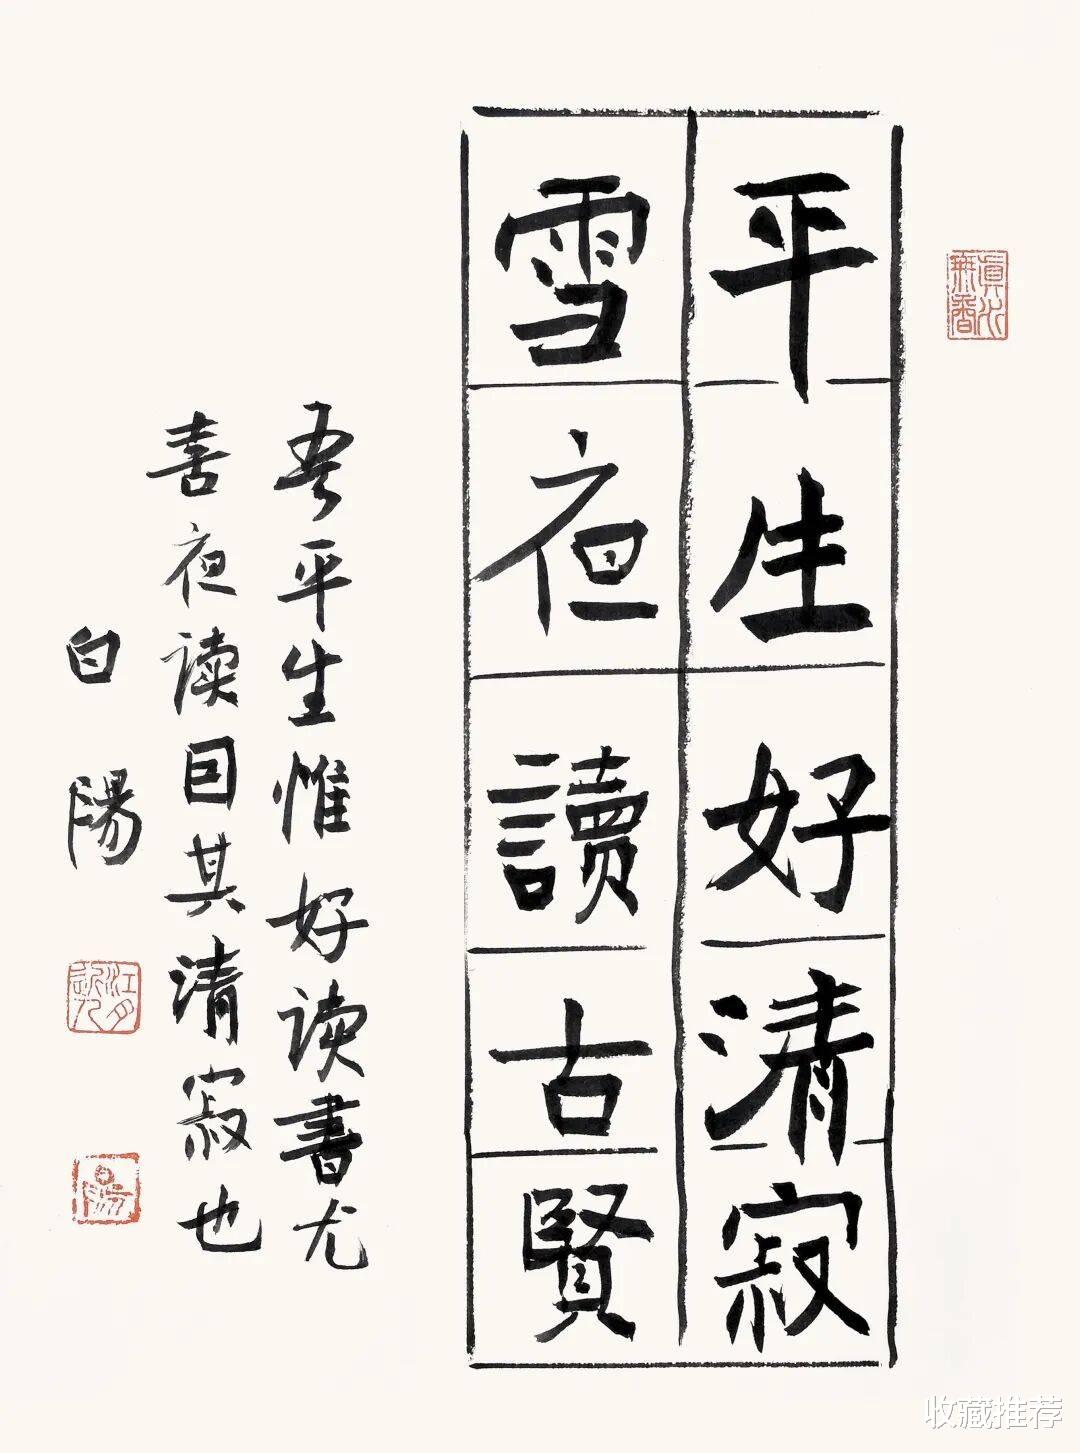 平生好清寂
雪夜讀古賢
吾平生惟好读書尤
喜夜读因其清寂也
白陽
收藏推荐